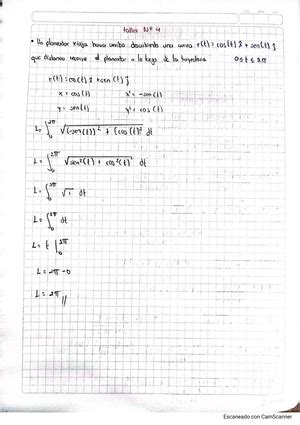 taller Nº 4
• Un planeador viaja hacia arriba describiendo una curva r(t) = cos(t) î + sen(t) ĵ
que distancia recorre el planeador a lo largo de la trayectoria 0 ≤ t ≤ 2π
r(t) = cos(t) î + sen(t) ĵ
x = cos(t) x' = -sen(t)
y = sen(t) y' = cos(t)
L = ∫₀^2π √(-sen(t))² + (cos(t))² dt
L = ∫₀^2π √sen²(t) + cos²(t) dt
L = ∫₀^2π √1 dt
L = ∫₀^2π dt
L = t |₀^2π
L = 2π - 0
L = 2π //
Escaneado con CamScanner